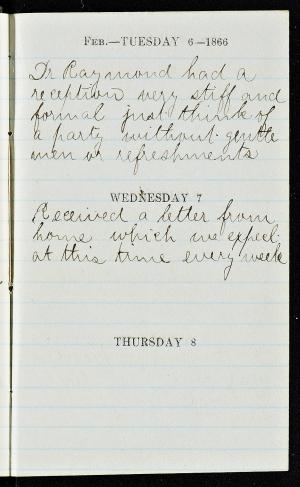 Feb.—TUESDAY 6—1866
Dr Raymond had a
reception very stiff and
formal just think of
a party without gentle
men or refreshments
WEDNESDAY 7
Received a letter from
home which we expect
at this time every week
THURSDAY 8